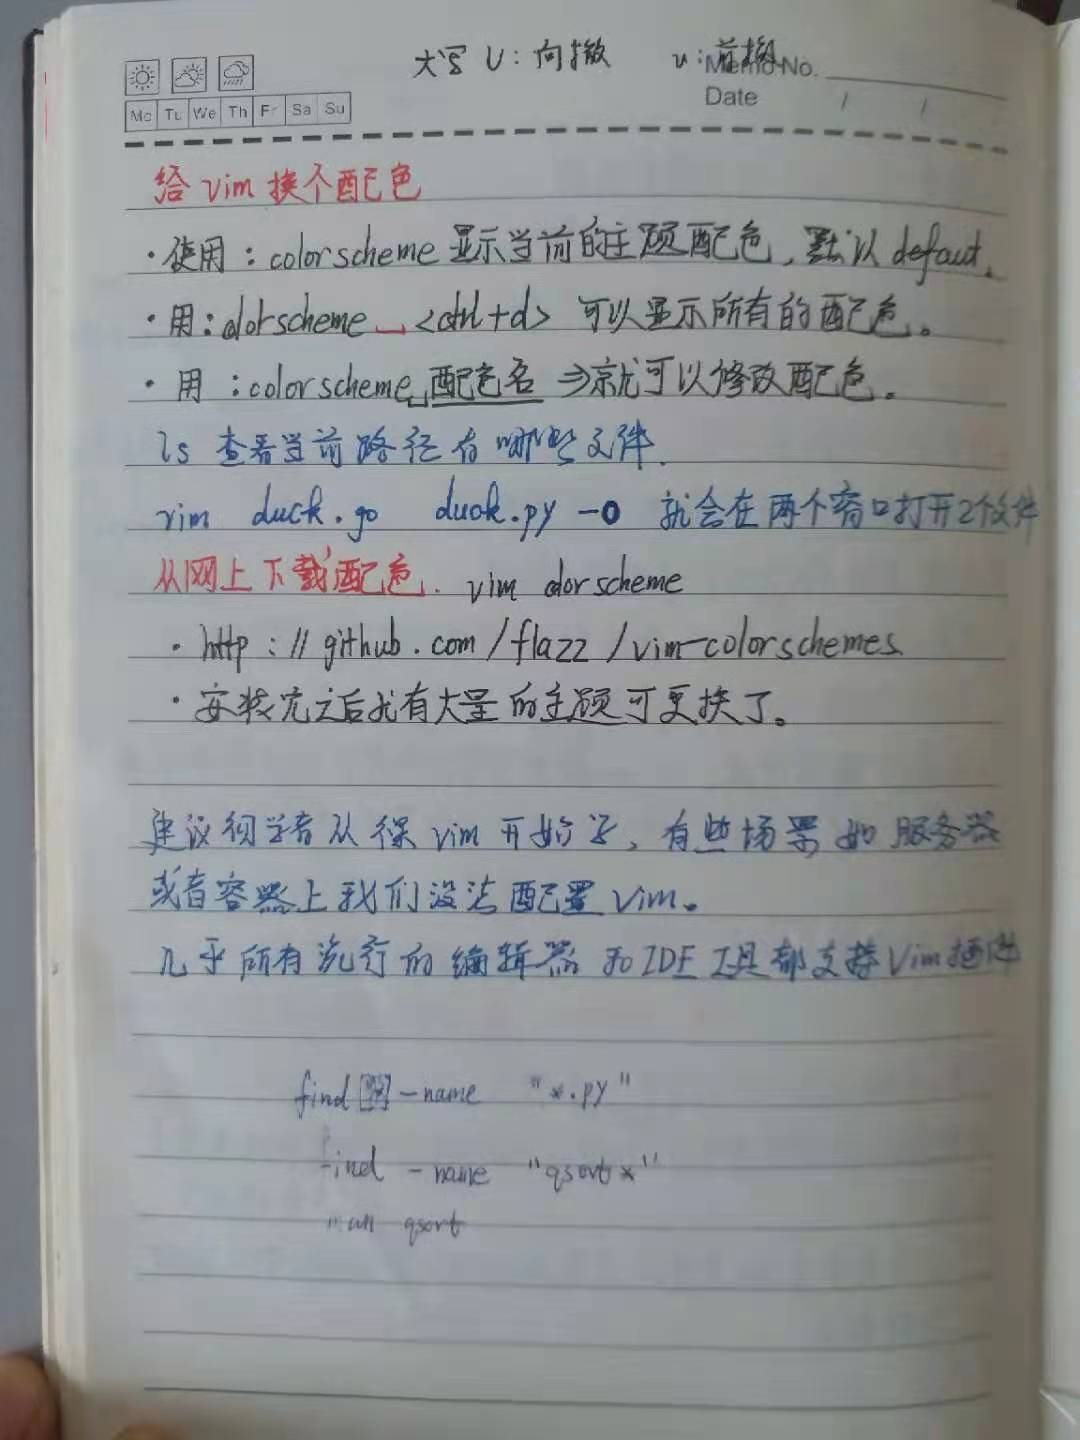 大写 U：向撤 u：前撤
Memo No.
Mo Tu We Th Fr Sa Su
Date / /
给 vim 换个配色
·使用：colorscheme 显示当前的主题配色，默认 defaut。
·用：olorscheme␣<ctrl+d> 可以显示所有的配色。
·用：colorscheme␣配色名 ⇒就可以修改配色。
ls 查看当前路径有哪些文件.
vim duck.go duck.py -O 就会在两个窗口打开2个文件
从网上下载配色. vim olorscheme
·http://github.com/flazz/vim-colorschemes
·安装完之后就有大量的主题可更换了。
建议初学者从裸 vim 开始学，有些场景如服务器
或者容器上我们没法配置 Vim。
几乎所有流行的编辑器和IDE工具都支持Vim插件
find -name "*.py"
find -name "qsort*"
man qsort